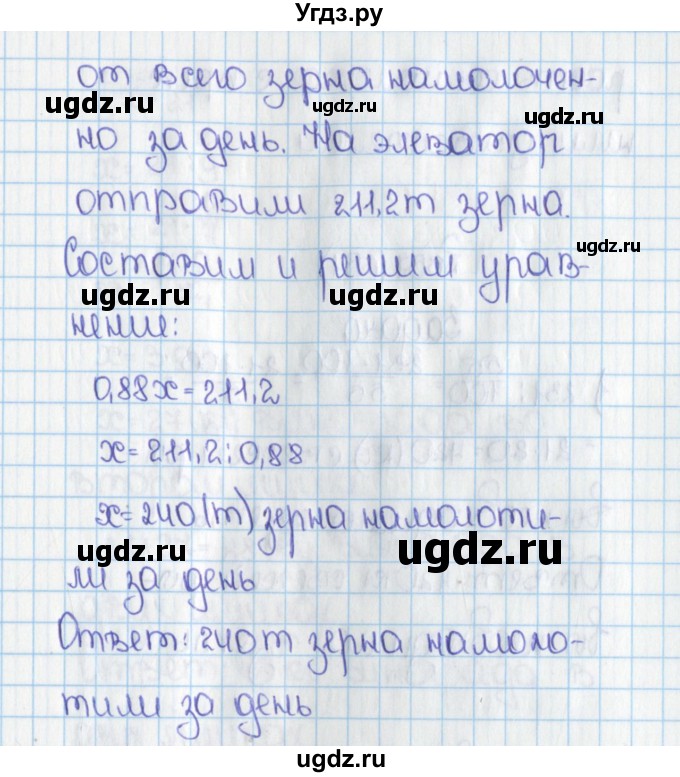 Угдз.ру
от всего зерна намолочен-
ugdz.ru ugdz.ru ugdz.ru
но за день. На элеватор
отправили 211,2т зерна.
ugdz.ru
Составим и решим урав-
ugdz.ru ugdz.ru
нение:
0,88x = 211,2
x = 211,2 : 0,88
x = 240 (т) зерна намолоти-
ugdz.ru ugdz.ru
ли за день
Ответ: 240т зерна намоло-
тили за день
ugdz.ru
ugdz.ru